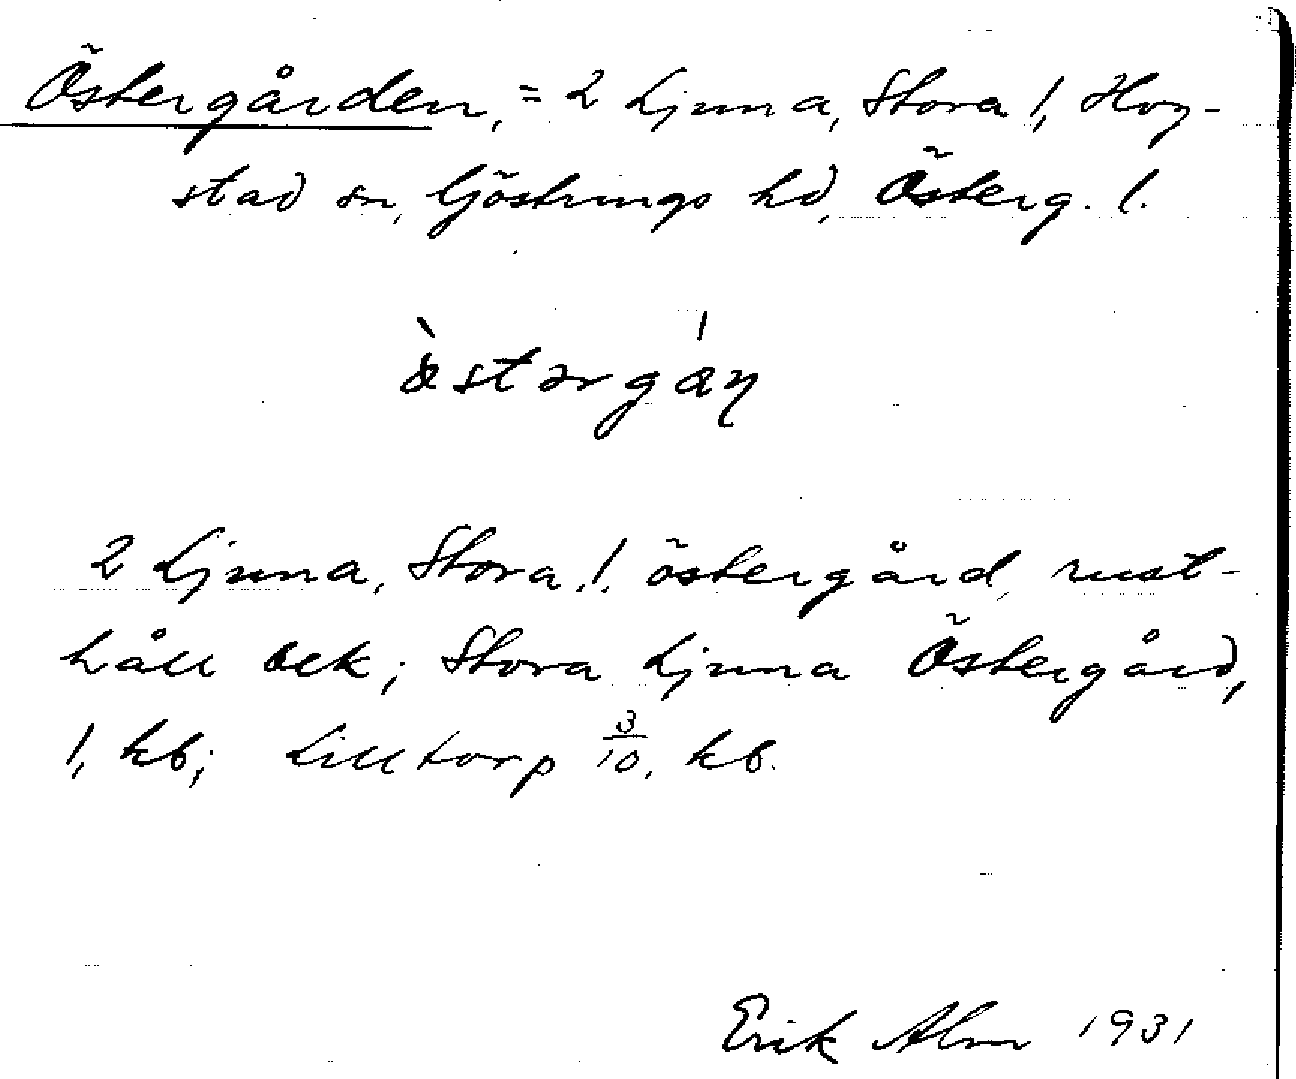 Östergården, = 2 Ljunna, Stora 1, Hog-
stad sn, Göstrings hd, Österg. l.
2 Ljunna, Stora, 1. östergård, rust-
håll Oek; Stora Ljunna Östergård,
1, kb; Lilltorp 3/10, kb.
Erik Alm 1931